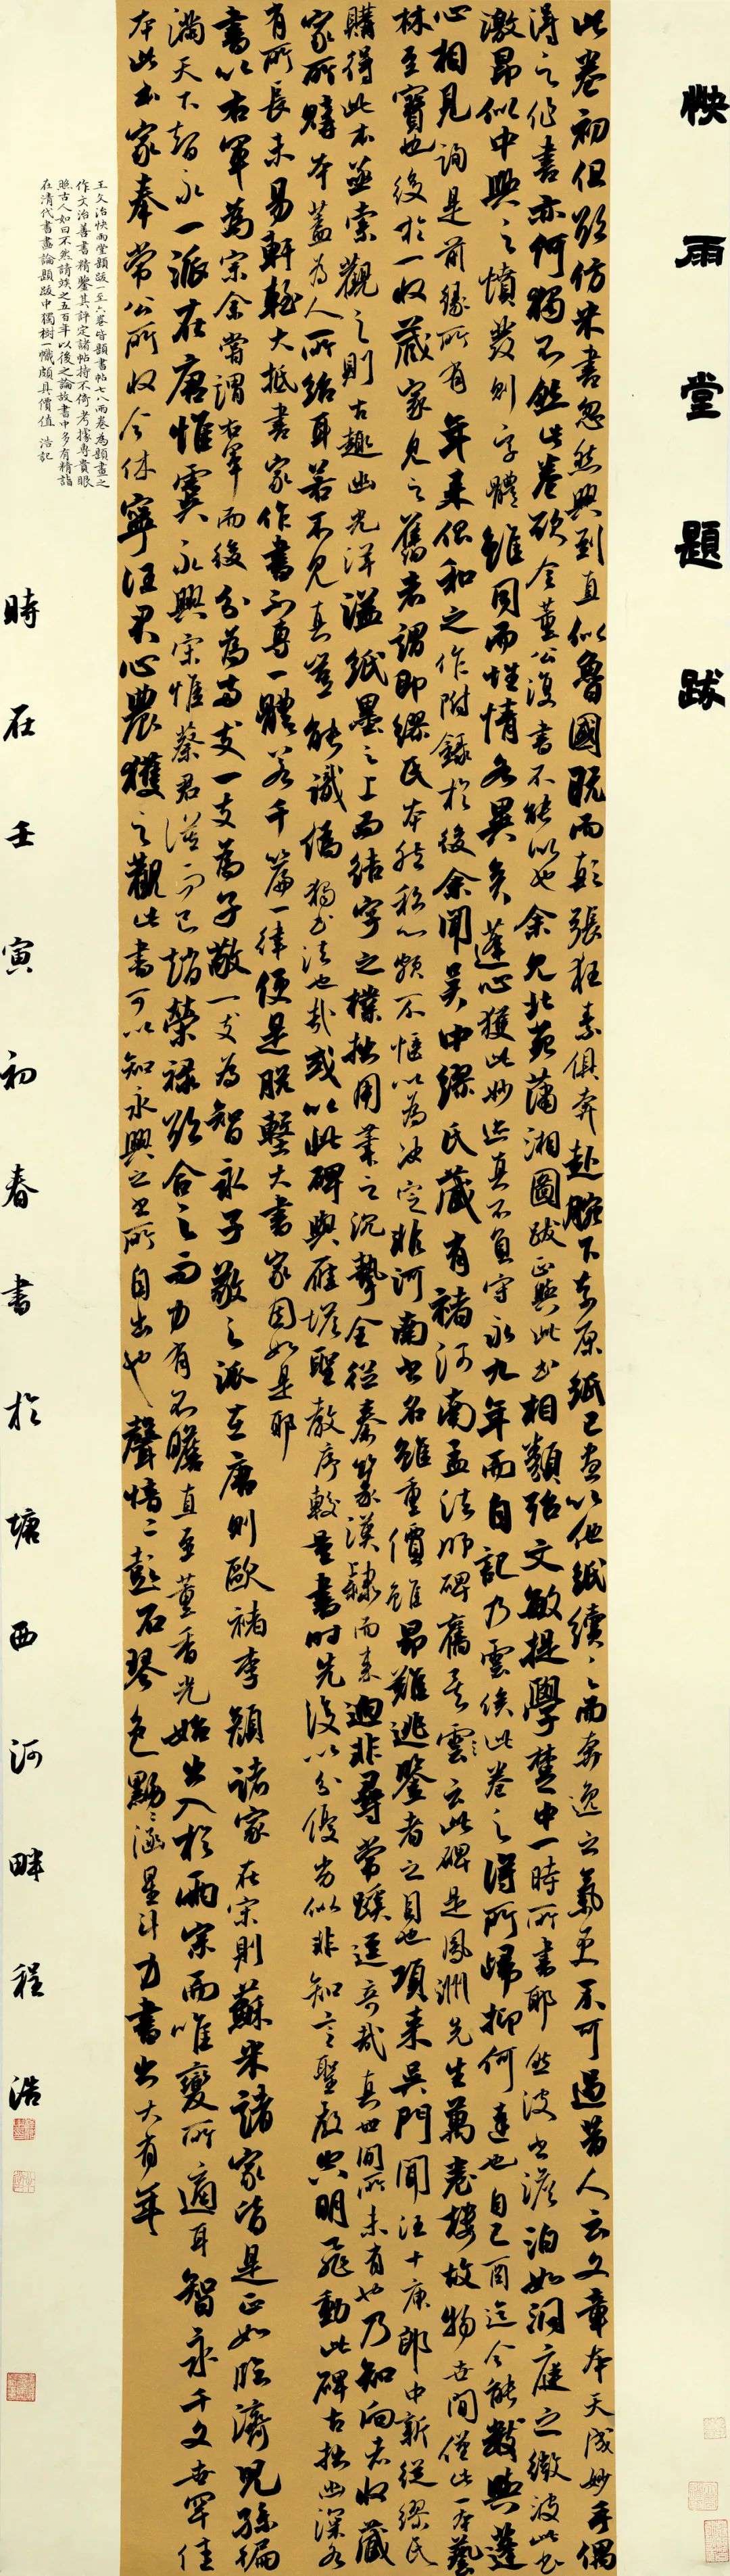 快雨堂題跋
此卷初但欲仿米書忽然興到直似魯國既而顛張狂素俱奔赴腕下東原紙已盡以他紙續之而奔逸之氣更不可遏昔人云文章本天成妙手偶
得之作書亦何獨不然此卷欲令董公復書不能似也余見北苑瀟湘圖跋正與此書相類殆文敏提學楚中一時所書耶然波也澹泊如洞庭之微波此書
激昂似中興之憤發則字體雖同而性情各異矣蓬心獲此妙迹真不負守永九年而自記乃云俟此卷之得所歸抑何達也自己酉迄今能數與蓬
心相見詢是前緣所有年來倡和之作附錄於後余聞吳中繆氏藏有褚河南孟法師碑舊矣雲云此碑是鳳洲先生萬卷樓故物世間僅此一本藝
林至寶也後於一收藏家見之舊者謂即繆氏本然私心頗不愜以為決定非河南書名雖重價雖昂難逃鑒者之目也項來吳門聞汪十庚郎中新從繆氏
購得此本亟索觀之則古趣幽光洋溢紙墨之上而結字之樸拙用筆之沉摯全從秦篆漢隸而來迥非尋常蹊逕奇哉真世間所未有也乃知向者收藏
家所購本蓋為人所紿耳若不見真豈能識僞獨書法也哉或以此碑與雁塔聖教序較量書時先後以分優劣似非知言聖教空明飛動此碑古拙幽深各
有所長未易軒輊大抵書家作書不專一體若千篇一律便是脫墼大書家固如是耶
書以右軍為宗余嘗謂右軍而後分為兩支一支為子敬一支為智永子敬之派在唐則歐褚李顏諸家在宋則蘇米諸家皆是正如臨濟兒孫徧
滿天下智永一派在唐惟虞永興宋惟蔡君謨而已趙榮祿欲合之而力有不瞻直至董香光始出入於兩宗而唯變所適耳智永千文世罕佳
本此本家奉常公所收今休寧汪君心農獲之觀此書可以知永興之書所自出也聲愔愔彭石琴色黝黝涵星斗力書出大有年
王文治快雨堂題跋一至六卷皆題書帖七八兩卷為題畫之
作文治善書精鑒其評定諸帖持不倚考據專貴眼
照古人如曰不然請俟之五百年以後之論故書中多有精詣
在清代書畫論題跋中獨樹一幟頗具價值 浩記
時在壬寅初春書於塘西河畔程浩